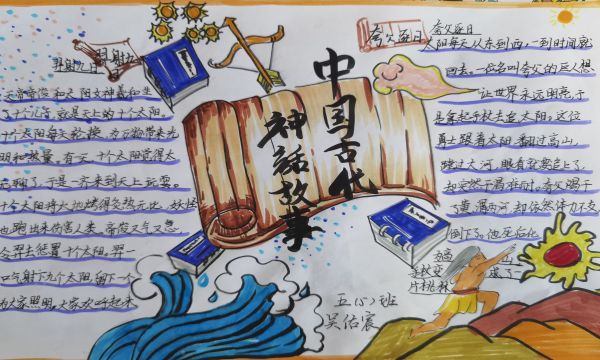 中国古代
神话故事
羿射九日
天帝帝俊和太阳女神羲和生
了十个儿子，就是天上的十个太阳。
十个太阳每天轮换，为万物带来光
明和热量。有一天十个太阳觉得太
无聊了，于是一齐来到天上玩耍。
十个太阳将大地烤得炎热无比，妖怪
也跑出来伤害人类，帝俊又气又急，
令羿去惩罚十个太阳。羿
一口气射下九个太阳，留下一个
为大家照明，大家欢呼起来
夸父逐日
夸父逐日
太阳每天从东到西，一到时间就
回去。一位名叫夸父的巨人想
让世界永远明亮，于
是拿起手杖去追太阳。这位
勇士跟着太阳翻过高山，
跨过大河，眼看就要追上了，
却突然干渴难耐。夸父喝干
了黄、渭两河，却依然体力不支，
倒下了。他死后化
为高山，
手杖变成了一
片桃林
五（5）班
吴佑宸